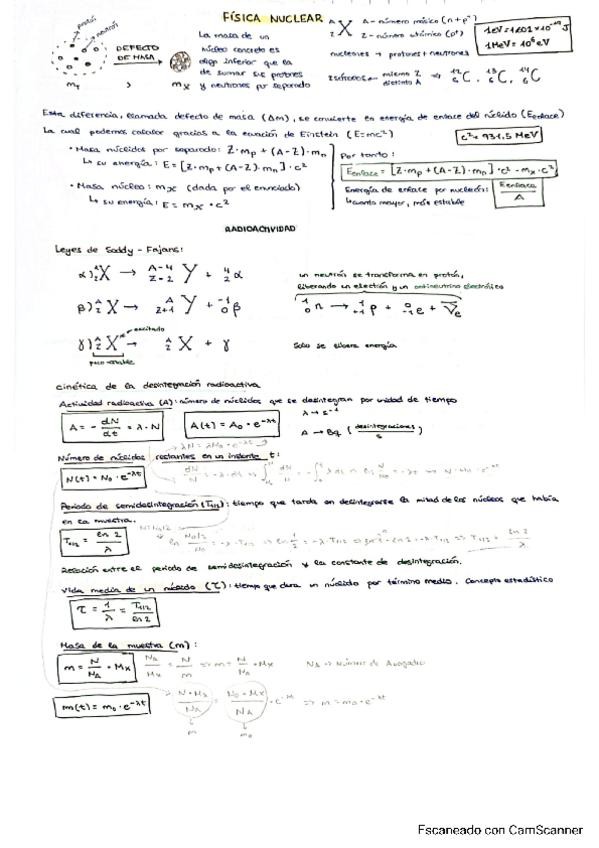 FÍSICA NUCLEAR
protón
neutrón
DEFECTO DE MASA
La masa de un
núcleo concreto es
algo inferior que la
de sumar sus protones
y neutrones por separado
A_Z X A - número másico (n + p+)
Z - número atómico (p+)
nucleones → protones + neutrones
Isótopos mismo Z distinto A ⇒ 12_6 C, 13_6 C, 14_6 C
1 MeV = 10^6 eV
Esta diferencia, llamada defecto de masa (Δm), se convierte en energía de enlace del núclido (Eenlace)
La cual podemos calcular gracias a la ecuación de Einstein (E=mc²)
c² = 931.5 MeV
• Masa núclidos por separado: Z·mp + (A-Z)·mn
↳ su energía: E = [Z·mp + (A-Z)·mn]·c²
• Masa núcleo: mx (dada por el enunciado)
↳ su energía: E = mx·c²
Por tanto:
Eenlace = [Z·mp + (A-Z)·mn]·c² - mx·c²
Energía de enlace por nucleón: Eenlace / A
↳ cuanto mayor, más estable
RADIOACTIVIDAD
Leyes de Soddy - Fajans:
α) A_Z X → A-4_Z-2 Y + 4_2 α
β) A_Z X → A_Z+1 Y + -1_0 β
un neutrón se transforma en protón,
liberando un electrón y un antineutrino electrónico
γ) A_Z X* → A_Z X + γ
excitado
poco estable
Solo se libera energía
cinética de la desintegración radioactiva
Actividad radioactiva (A): número de núclidos que se desintegran por unidad de tiempo
A = - dN/dt = λ·N
A(t) = A0·e^-λt
λ → s^-1
A → Bq (desintegraciones / s)
Número de núclidos restantes en un instante t:
N(t) = N0·e^-λt
Periodo de semidesintegración (T1/2): tiempo que tarda en desintegrarse la mitad de los núcleos que había
en la muestra.
T1/2 = ln 2 / λ
Relación entre el periodo de semidesintegración y la constante de desintegración.
Vida media de un núclido (τ): tiempo que dura un núclido por término medio. Concepto estadístico
τ = 1/λ = T1/2 / ln 2
Masa de la muestra (m):
m = N/NA · Mx
NA/Mx = N/m ⇒ m = N/NA · Mx
NA ⇒ Número de Avogadro
m(t) = m0·e^-λt
Escaneado con CamScanner